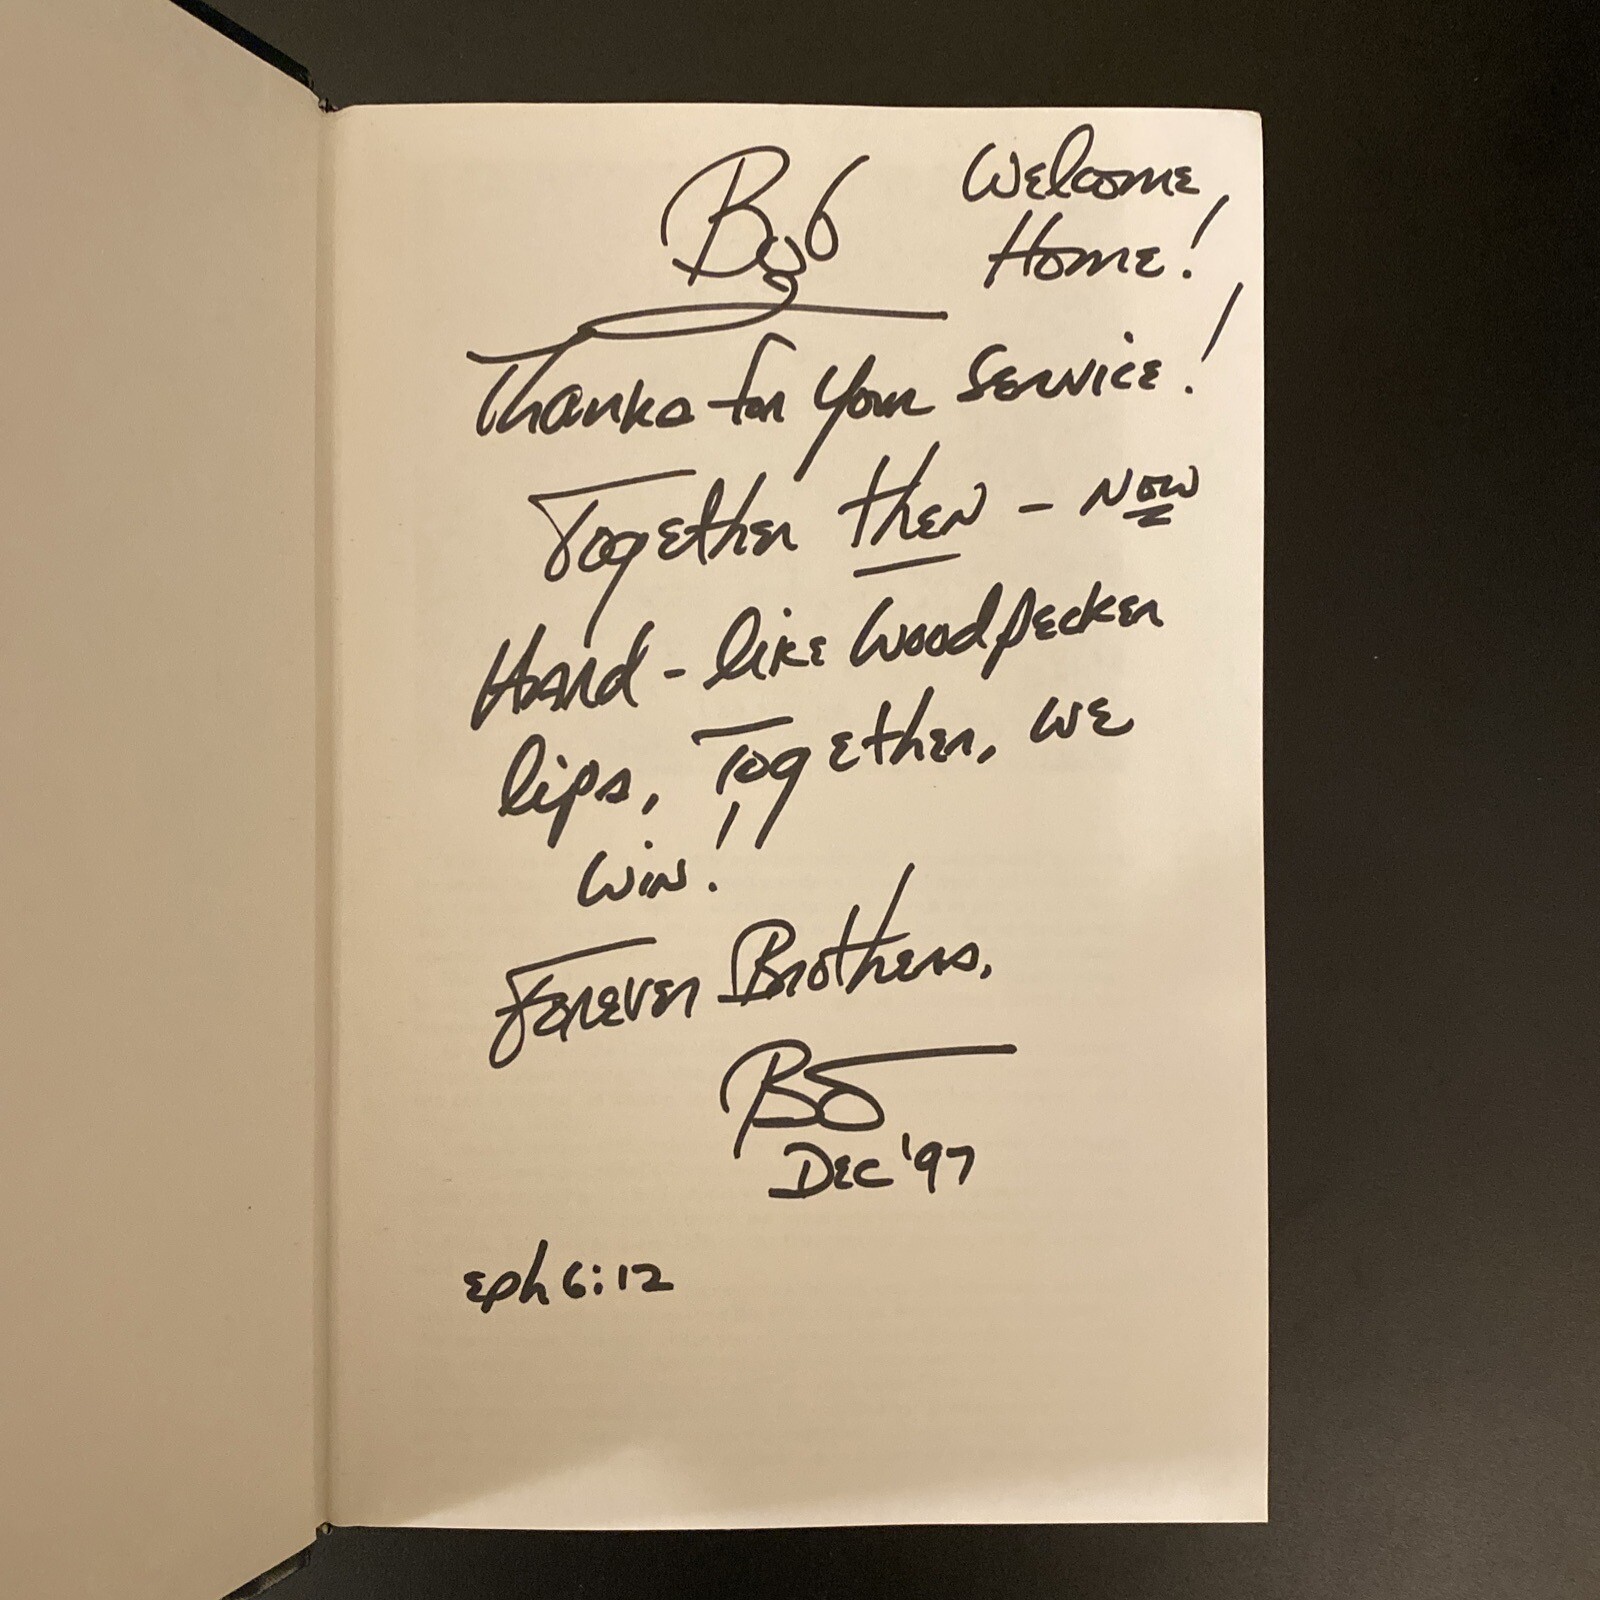 Bob Welcome
Home!
Thanks for Your Service!
Together then - NOW
Hard - like Woodpecker
lips, Together, we
win!
Forever Brothers,
BG
Dec '97
eph 6:12